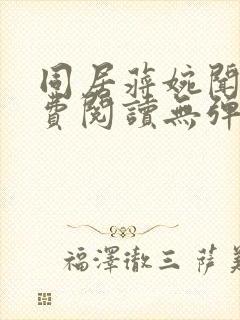 同居蔣婉聞
費閱讀無彈
福澤徹三 薩美